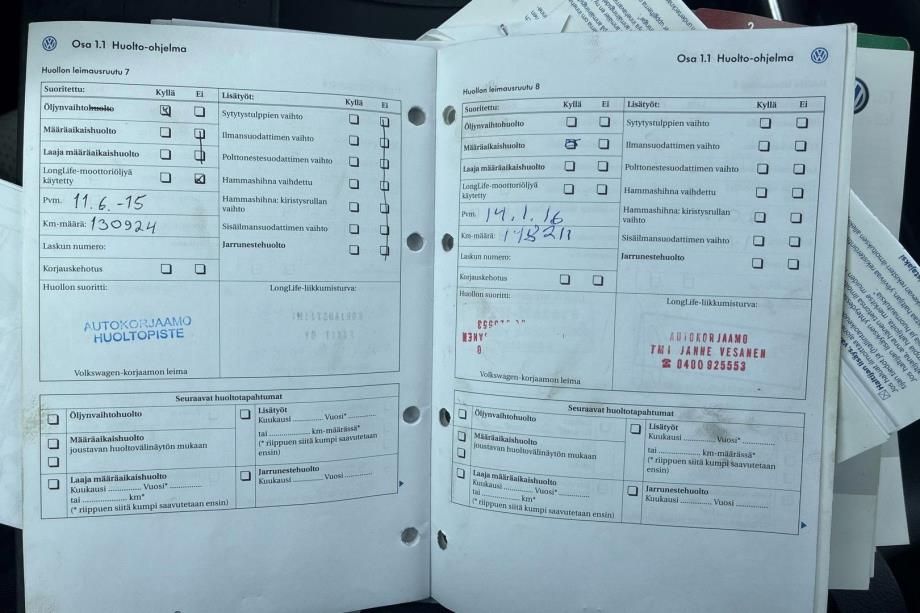 Osa 1.1 Huolto-ohjelma
Huollon leimausruutu 7
Suoritettu: Kyllä Ei
Öljynvaihtohuolto
Määräaikaishuolto
Laaja määräaikaishuolto
LongLife-moottoriöljyä
käytetty
Pvm. 11.6.-15
Km-määrä: 130924
Laskun numero:
Korjauskehotus
Lisätyöt: Kyllä Ei
Sytytystulppien vaihto
Ilmansuodattimen vaihto
Polttonestesuodattimen vaihto
Hammashihna vaihdettu
Hammashihna: kiristysrullan
vaihto
Sisäilmansuodattimen vaihto
Jarrunestehuolto
Huollon suoritti:
AUTOKORJAAMO
HUOLTOPISTE
Volkswagen-korjaamon leima
LongLife-liikkumisturva:
Seuraavat huoltotapahtumat
Öljynvaihtohuolto
Määräaikaishuolto
joustavan huoltovälinäytön mukaan
Laaja määräaikaishuolto
Kuukausi .............. Vuosi* .............
tai .................. km*
(* riippuen siitä kumpi saavutetaan ensin)
Lisätyöt
Kuukausi ............. Vuosi* .............
tai ................. km-määrässä*
(* riippuen siitä kumpi saavutetaan
ensin)
Jarrunestehuolto
Kuukausi ............. Vuosi .............
Osa 1.1 Huolto-ohjelma
Huollon leimausruutu 8
Suoritettu: Kyllä Ei
Öljynvaihtohuolto
Määräaikaishuolto
Laaja määräaikaishuolto
LongLife-moottoriöljyä
käytetty
Pvm. 14.1.16
Km-määrä:
Laskun numero:
Korjauskehotus
Lisätyöt: Kyllä Ei
Sytytystulppien vaihto
Ilmansuodattimen vaihto
Polttonestesuodattimen vaihto
Hammashihna vaihdettu
Hammashihna: kiristysrullan
vaihto
Sisäilmansuodattimen vaihto
Jarrunestehuolto
Huollon suoritti:
Volkswagen-korjaamon leima
LongLife-liikkumisturva:
AUTOKORJAAMO
TMI JANNE VESANEN
☎ 0400 925553
Seuraavat huoltotapahtumat
Öljynvaihtohuolto
Määräaikaishuolto
joustavan huoltovälinäytön mukaan
Laaja määräaikaishuolto
Kuukausi .............. Vuosi* .............
tai .................. km*
(* riippuen siitä kumpi saavutetaan ensin)
Lisätyöt
Kuukausi ............. Vuosi* .............
tai ................. km-määrässä*
(* riippuen siitä kumpi saavutetaan
ensin)
Jarrunestehuolto
Kuukausi ............. Vuosi .............